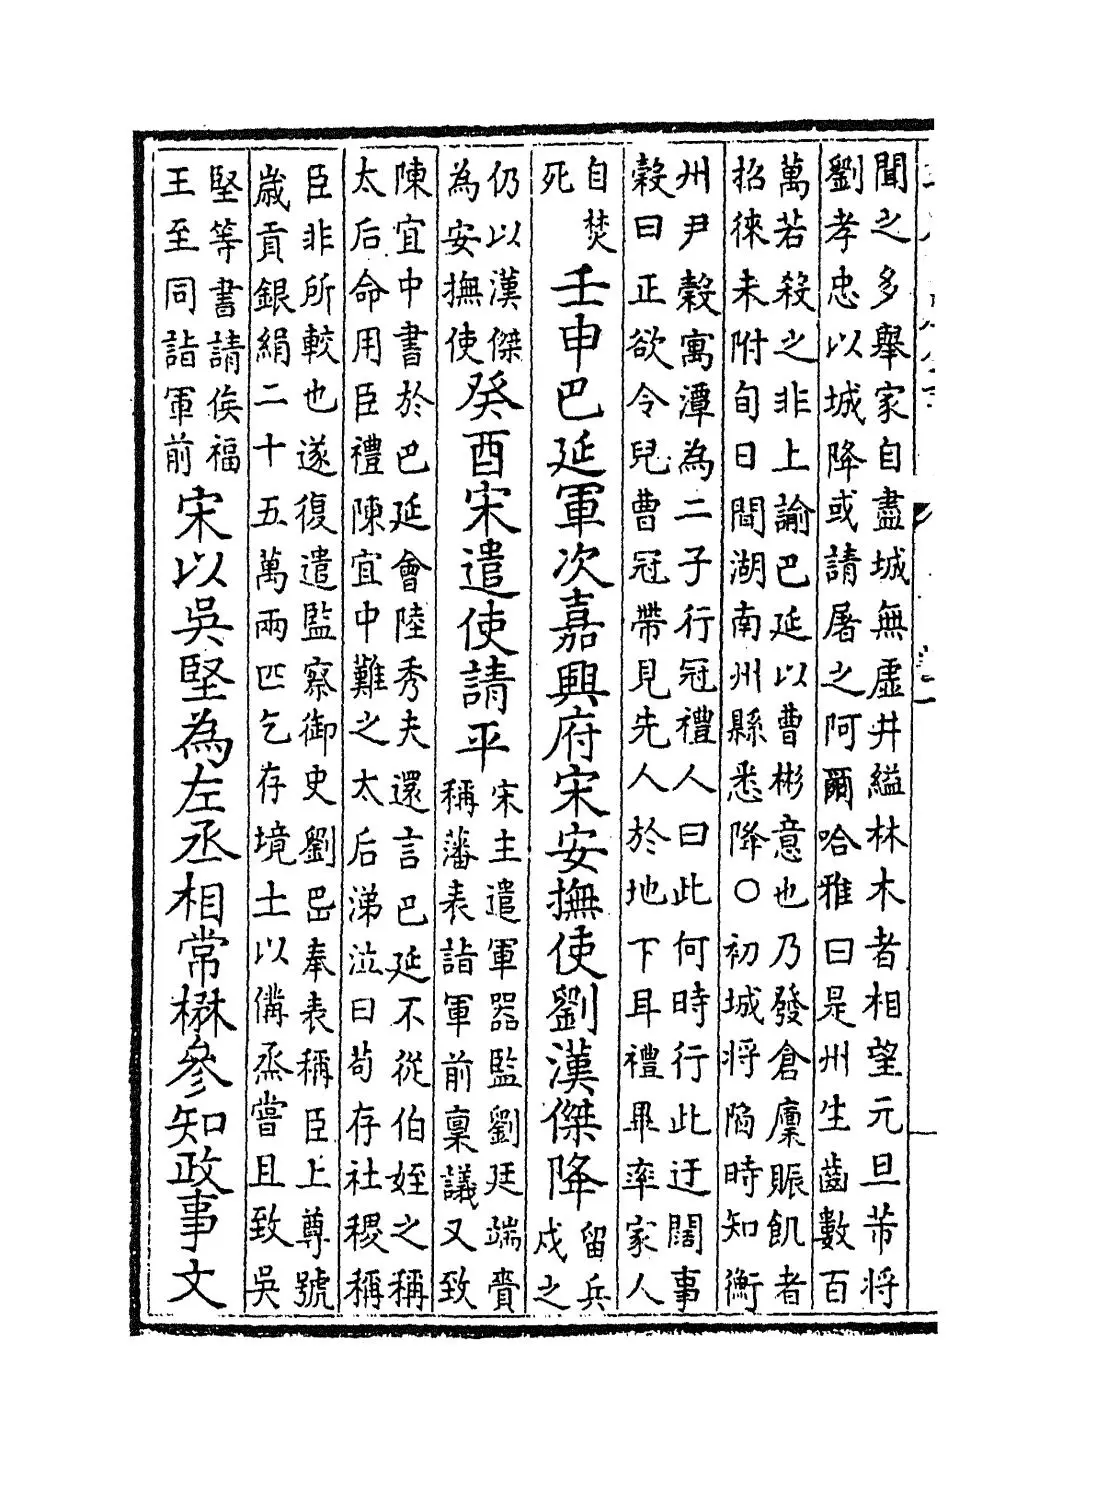 聞之多舉家自盡城無虛井縊林木者相望元旦芾將
劉孝忠以城降或請屠之阿爾哈雅曰是州生齒數百
萬若殺之非上諭巴延以曹彬意也乃發倉廩賑飢者
招徠未附旬日間湖南州縣悉降○初城將陷時知衡
州尹穀寓潭為二子行冠禮人曰此何時行此迂闊事
穀曰正欲令兒曹冠帶見先人於地下耳禮畢率家人
自焚
死
壬申巴延軍次嘉興府宋安撫使劉漢傑降
留兵
戍之
仍以漢傑
為安撫使
癸酉宋遣使請平
宋主遣軍器監劉廷端賫
稱藩表詣軍前稟議又致
陳宜中書於巴延會陸秀夫還言巴延不從伯姪之稱
太后命用臣禮陳宜中難之太后涕泣曰苟存社稷稱
臣非所較也遂復遣監察御史劉岊奉表稱臣上尊號
歲貢銀絹二十五萬兩匹乞存境土以備烝嘗且致吳
堅等書請俟福
王至同詣軍前
宋以吳堅為左丞相常楙參知政事文